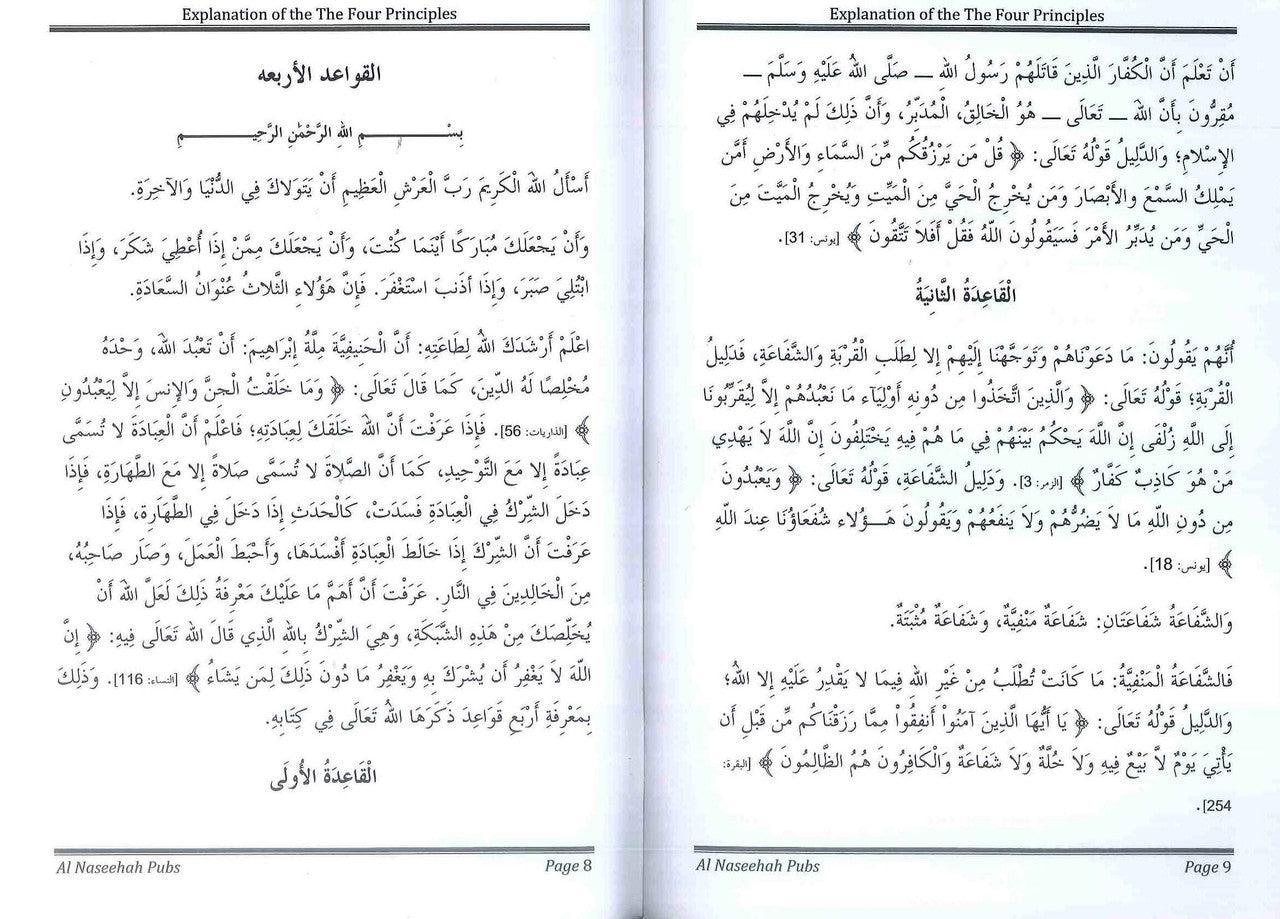 Explanation of the The Four Principles
القواعد الأربعه
بِسْــــــــمِ اللهِ الرَّحْمٰنِ الرَّحِيــــــــمِ
أَسْأَلُ اللهَ الْكَرِيمَ رَبَّ الْعَرْشِ الْعَظِيمِ أَنْ يَتَوَلاكَ فِي الدُّنْيَا وَالآخِرَةِ.
وَأَنْ يَجْعَلَكَ مُبَارَكًا أَيْنَمَا كُنْتَ، وَأَنْ يَجْعَلَكَ مِمَّنْ إِذَا أُعْطِيَ شَكَرَ، وَإِذَا
ابْتُلِيَ صَبَرَ، وَإِذَا أذنبَ اسْتَغْفَرَ. فَإِنَّ هَؤُلاءِ الثَّلاثُ عُنْوَانُ السَّعَادَةِ.
اعْلَمْ أَرْشَدَكَ اللهُ لِطَاعَتِهِ: أَنَّ الْحَنِيفِيَّةَ مِلَّةُ إِبْرَاهِيمَ: أَنْ تَعْبُدَ اللهَ، وَحْدَهُ
مُخْلِصًا لَهُ الدِّينَ، كَمَا قَالَ تَعَالَى: ﴿ وَمَا خَلَقْتُ الْجِنَّ وَالإِنسَ إِلاَّ لِيَعْبُدُونِ
﴾ [الذاريات: 56]. فَإِذَا عَرَفْتَ أَنَّ اللهَ خَلَقَكَ لِعِبَادَتِهِ؛ فَاعْلَمْ أَنَّ الْعِبَادَةَ لا تُسَمَّى
عِبَادَةً إِلا مَعَ التَّوْحِيدِ، كَمَا أَنَّ الصَّلاةَ لا تُسَمَّى صَلاةً إِلا مَعَ الطَّهَارَةِ، فَإِذَا
دَخَلَ الشِّرْكُ فِي الْعِبَادَةِ فَسَدَتْ، كَالْحَدَثِ إِذَا دَخَلَ فِي الطَّهَارَةِ، فَإِذَا
عَرَفْتَ أَنَّ الشِّرْكَ إِذَا خَالَطَ الْعِبَادَةِ أَفْسَدَهَا، وَأَحْبَطَ الْعَمَلَ، وَصَارَ صَاحِبُهُ،
مِنَ الْخَالِدِينَ فِي النَّارِ. عَرَفْتَ أَنَّ أَهَمَّ مَا عَلَيْكَ مَعْرِفَةُ ذَلِكَ لَعَلَّ اللهَ أَنْ
يُخَلِّصَكَ مِنْ هَذِهِ الشَّبَكَةِ، وَهِيَ الشِّرْكُ بِاللهِ الَّذِي قَالَ اللهَ تَعَالَى فِيهِ: ﴿ إِنَّ
اللّهَ لاَ يَغْفِرُ أَن يُشْرَكَ بِهِ وَيَغْفِرُ مَا دُونَ ذَلِكَ لِمَن يَشَاءُ ﴾ [النساء: 116]. وَذَلِكَ
بِمَعْرِفَةِ أَرْبَعِ قَوَاعِدَ ذَكَرَهَا اللهُ تَعَالَى فِي كِتَابِهِ.
الْقَاعِدَةُ الأُولَى
Al Naseehah Pubs
Page 8
Explanation of the The Four Principles
أَنْ تَعْلَمَ أَنَّ الْكُفَّارَ الَّذِينَ قَاتَلَهُمْ رَسُولُ اللهِ ــ صَلَّى اللهُ عَلَيْهِ وَسَلَّمَ ــ
مُقِرُّونَ بِأَنَّ اللهَ ــ تَعَالَى ــ هُوُ الْخَالِقُ، الْمُدَبِّرُ، وَأَنَّ ذَلِكَ لَمْ يُدْخِلْهُمْ فِي
الإِسْلامِ؛ وَالدَّلِيلُ قَوْلُهُ تَعَالَى: ﴿ قُلْ مَن يَرْزُقُكُم مِّنَ السَّمَاءِ وَالأَرْضِ أَمَّن
يَمْلِكُ السَّمْعَ والأَبْصَارَ وَمَن يُخْرِجُ الْحَيَّ مِنَ الْمَيِّتِ وَيُخْرِجُ الْمَيَّتَ مِنَ
الْحَيِّ وَمَن يُدَبِّرُ الأَمْرَ فَسَيَقُولُونَ اللّهُ فَقُلْ أَفَلاَ تَتَّقُونَ ﴾ [يونس: 31].
الْقَاعِدَةُ الثَّانِيَةُ
أَنَّهُمْ يَقُولُونَ: مَا دَعَوْنَاهُمْ وَتَوَجَّهْنَا إِلَيْهِمْ إِلا لِطَلَبِ الْقُرْبَةِ وَالشَّفَاعَةِ، فَدَلِيلُ
الْقُرْبَةِ؛ قَوْلُهُ تَعَالَى: ﴿ وَالَّذِينَ اتَّخَذُوا مِن دُونِهِ أَوْلِيَآء مَا نَعْبُدُهُمْ إِلاَّ لِيُقَرِّبُونَا
إِلَى اللَّهِ زُلْفَى إِنَّ اللَّهَ يَحْكُمُ بَيْنَهُمْ فِي مَا هُمْ فِيهِ يَخْتَلِفُونَ إِنَّ اللَّهَ لاَ يَهْدِي
مَنْ هُوَ كَاذِبٌ كَفَّارٌ ﴾ [الزمر: 3]. وَدَلِيلُ الشَّفَاعَةِ، قَوْلُهُ تَعَالَى: ﴿ وَيَعْبُدُونَ
مِن دُونِ اللّهِ مَا لاَ يَضُرُّهُمْ وَلاَ يَنفَعُهُمْ وَيَقُولُونَ هَــؤُلاء شُفَعَاؤُنَا عِندَ اللّهِ
﴾ [يونس: 18].
وَالشَّفَاعَةُ شَفَاعَتَانِ: شَفَاعَةٌ مَنْفِيَّةٌ، وَشَفَاعَةٌ مُثْبَتَةٌ.
فَالشَّفَاعَةُ الْمَنْفِيَّةُ: مَا كَانَتْ تُطْلَبُ مِنْ غَيْرِ اللهِ فِيمَا لا يَقْدِرُ عَلَيْهِ إِلا اللهُ؛
وَالدَّلِيلُ قَوْلُهُ تَعَالَى: ﴿ يَا أَيُّهَا الَّذِينَ آمَنُواْ أَنفِقُواْ مِمَّا رَزَقْنَاكُم مِّن قَبْلِ أَن
يَأْتِيَ يَوْمٌ لاَّ بَيْعٌ فِيهِ وَلاَ خُلَّةٌ وَلاَ شَفَاعَةٌ وَالْكَافِرُونَ هُمُ الظَّالِمُونَ ﴾ [البقرة:
254].
Al Naseehah Pubs
Page 9